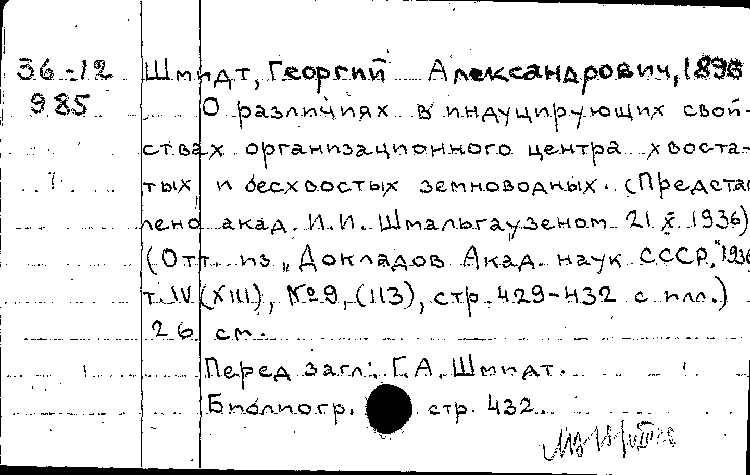 36-12 Шмидт, Георгий Александрович, 1896
985 О различиях в индуцирующих свой-
ствах организационного центра хвоста-
тых и бесхвостых земноводных. (Представ
лено акад. И.И. Шмальгаузеном 21 X 1936)
(Отт. из „Докладов Акад. наук СССР," 1936
т. IV (XIII), №9, (113), стр. 429-432 с илл.)
26 см.
Перед загл.: Г.А. Шмидт.
Библиогр. стр. 432.